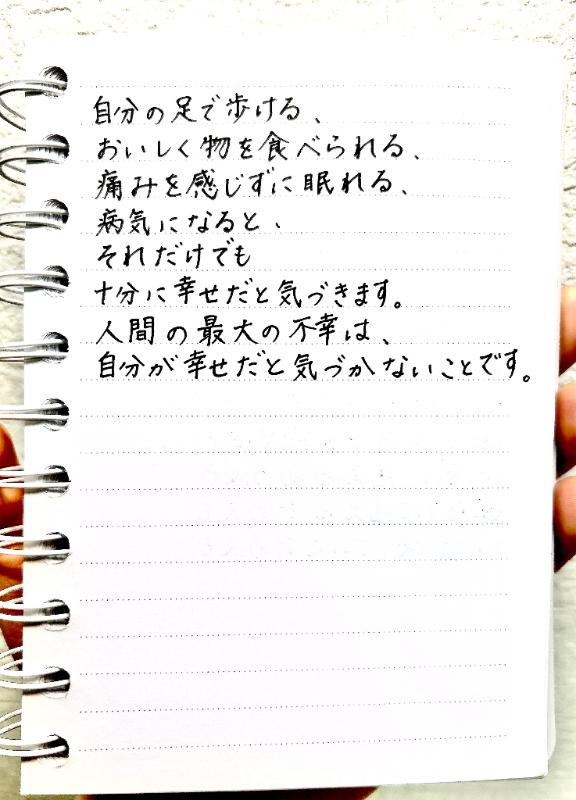 自分の足で歩ける、
おいしく物を食べられる、
痛みを感じずに眠れる、
病気になると、
それだけでも
十分に幸せだと気づきます。
人間の最大の不幸は、
自分が幸せだと気づかないことです。